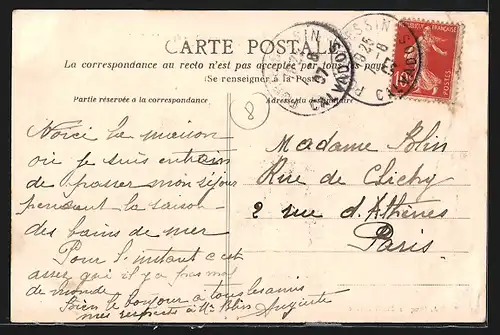 CARTE POSTALE
La correspondance au recto n'est pas acceptée par tous les pays
(Se renseigner à la Poste)
Partie réservée à la correspondance
Adresse du destinataire
8
CALVADOS
CALVADOS
POSTES
Voici la maison
où je suis entrain
de passer mon séjour
pendant la saison
des bains de mer
Pour l'instant c'est
assez gai il y a pas mal
de monde
Bien le bonjour à tous les amis
mes respects à Mr Blin
Auguste
Madame Blin
Rue de Clichy
2 rue d'Athènes
Paris